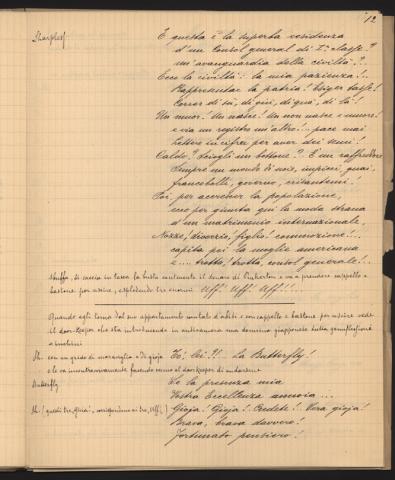 12
Sharpless
E questa è la superba residenza
d'un Consol generale di Iª classe?
un'avanguardia della civiltà?..
Ecco la civiltà: la mia pazienza!..
Rappresentar la patria! Esiger tasse!
Correr di su, di giù, di qua, di là!
Un muor! Un nasce! Un non nasce e muore!
e via un registro un'altro!... pace mai
Lettere in cifra per aver dei semi!
Caldo? Sciogli un bottone? È un raffreddore
Sempre un mondo di noie, impicci, guai,
francobolli, governo, esitantemi.
Poi, per accrescer la popolazione,
ecco per giunta qui la moda strana
d'un matrimonio internazionale
Nozze! divorzio! figlio! commozione!..
capita poi la moglie americana
e.... trotta! trotta, consol generale!..
Sbuffa, si caccia in tasca la busta contenente il denaro di Pinkerton e va a prendere cappello e
bastone per uscire, esplodendo tre enormi Uff! Uff! Uff!!...
Quando egli torna dal suo appartamento mutato d'abiti e con cappello e bastone per uscire vede
il door-keeper che sta introducendo in anticamera una donnina giapponese tutta
e inchini
Sh. con un grido di maraviglia e di gioja To'! Lei?!! .. La Butterfly!
e le va incontro facendo cenno al door-keeper di andarsene
Butterfly. Se la presenza mia
Vostra Eccellenza annoia....
Sh. (questi tre "Gioia" corrispondono ai tre "Uff") Gioja! Gioja! Credete! .. Vera gioja!
Brava, brava davvero!
Fortunato pensiero!